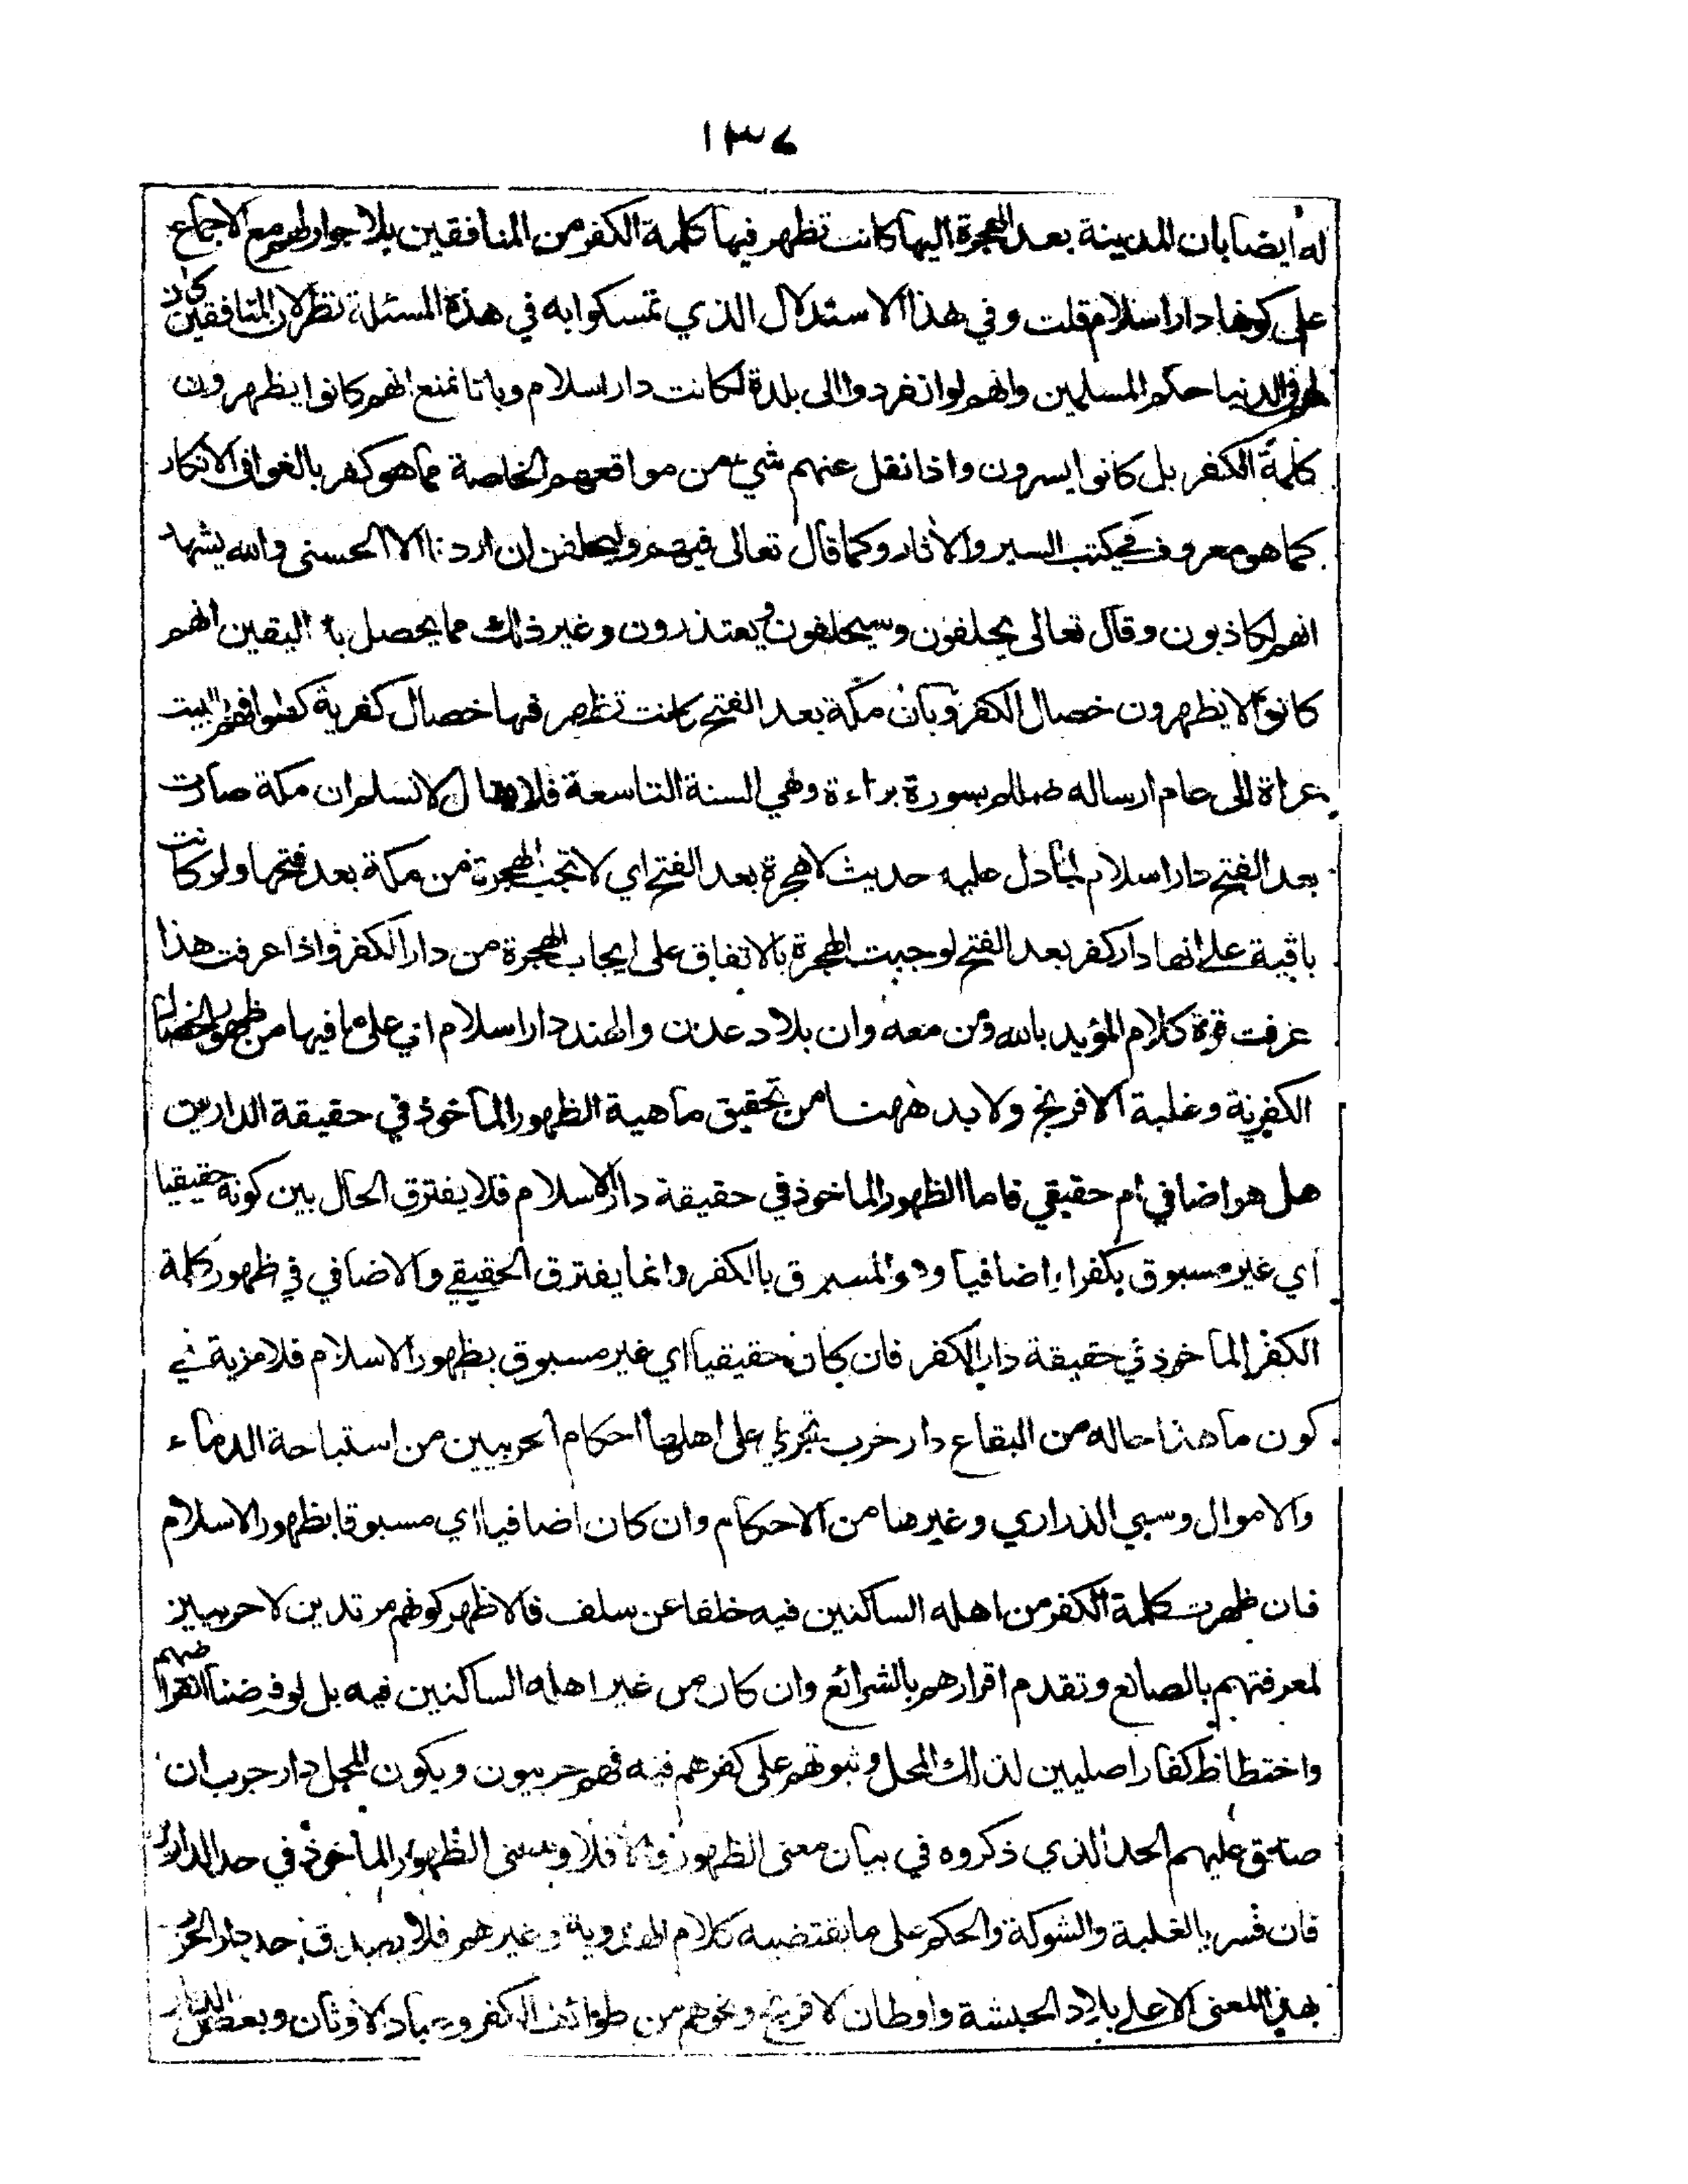 ١٣٤
له ايضا بان المدينة بعد الهجرة اليها كانت تظهر فيها كلمة الكفر من المنافقين بلا جوار لهم مع الاجماع
على كونها دار اسلام قلت وفي هذا الاستدلال الذي تمسكوا به في هذة المسئلة نظر لان المنافقين كان
لهم في الدنيا حكم المسلمين وانهم لو انفردوا الى بلدة لكانت دار اسلام وبانا نمنع انهم كانوا يظهرون
كلمة الكفر بل كانوا يسرون واذا نقل عنهم شيء من مواقعهم الخاصة مما هو كفر بالغوا في الانكار
كما هو معروف في كتب السير والاثار وكما قال تعالى فيهم وليحلفن ان اردنا الا الحسنى والله يشهد
انهم لكاذبون وقال تعالى يحلفون وسيحلفون ويعتذرون وغير ذلك مما يحصل به اليقين انهم
كانوا لا يظهرون خصال الكفر وبان مكة بعد الفتح كانت تظهر فيها خصال كفرية كطوافهم البيت
عراة الى عام ارساله صللم بسورة براءة وهي السنة التاسعة فلا يقال لا نسلم ان مكة صارت
بعد الفتح دار اسلام لما دل عليه حديث لا هجرة بعد الفتح اي لا تجب الهجرة من مكة بعد فتحها ولو كانت
باقية على انها دار كفر بعد الفتح لوجبت الهجرة بالاتفاق على ايجاب الهجرة من دار الكفر واذا عرفت هذا
عرفت قوة كلام المؤيد بالله ومن معه وان بلاد عدن والهند دار اسلام اي على ما فيها من ظهور الخصال
الكفرية وغلبة الافرنج ولا بد ههنا من تحقيق ماهية الظهور المأخوذ في حقيقة الدارين
هل هو اضافي ام حقيقي فاما الظهور الماخوذ في حقيقة دار الاسلام فلا يفترق الحال بين كونه حقيقيا
اي غير مسبوق بكفر او اضافيا وهو المسبوق بالكفر وانما يفترق الحقيقي والاضافي في ظهور كلمة
الكفر الماخوذ في حقيقة دار الكفر فان كان حقيقيا اي غير مسبوق بظهور الاسلام فلا مزية في
كون ما هذا حاله من البقاع دار حرب تجري على اهلها احكام الحربيين من استباحة الدماء
والاموال وسبي الذراري وغيرها من الاحكام وان كان اضافيا اي مسبوقا بظهور الاسلام
فان ظهرت كلمة الكفر من اهله الساكنين فيه خلفا عن سلف فالاظهر كونهم مرتدين لا حربيين
لمعرفتهم بالصانع وتقدم اقرارهم بالشرائع وان كان من غير اهله الساكنين فيه بل لو فرضنا انقراضهم
واختطاط كفار اصليين لذلك المحل وثبوتهم على كفرهم فيه فهم حربيون ويكون المحل دار حرب ان
صدق عليهم الحد الذي ذكروه في بيان معنى الظهور والا فلا ومعنى الظهور المأخوذ في حد الدار
فان فسر بالغلبة والشوكة والحكم على ما يقتضيه كلام الهدوية وغيرهم فلا يصدق حد دار الحرب
بهذا المعنى الا على بلاد الحبشة واوطان الافرنج ونحوهم من طوائف الكفر وعباد الاوثان وبعض